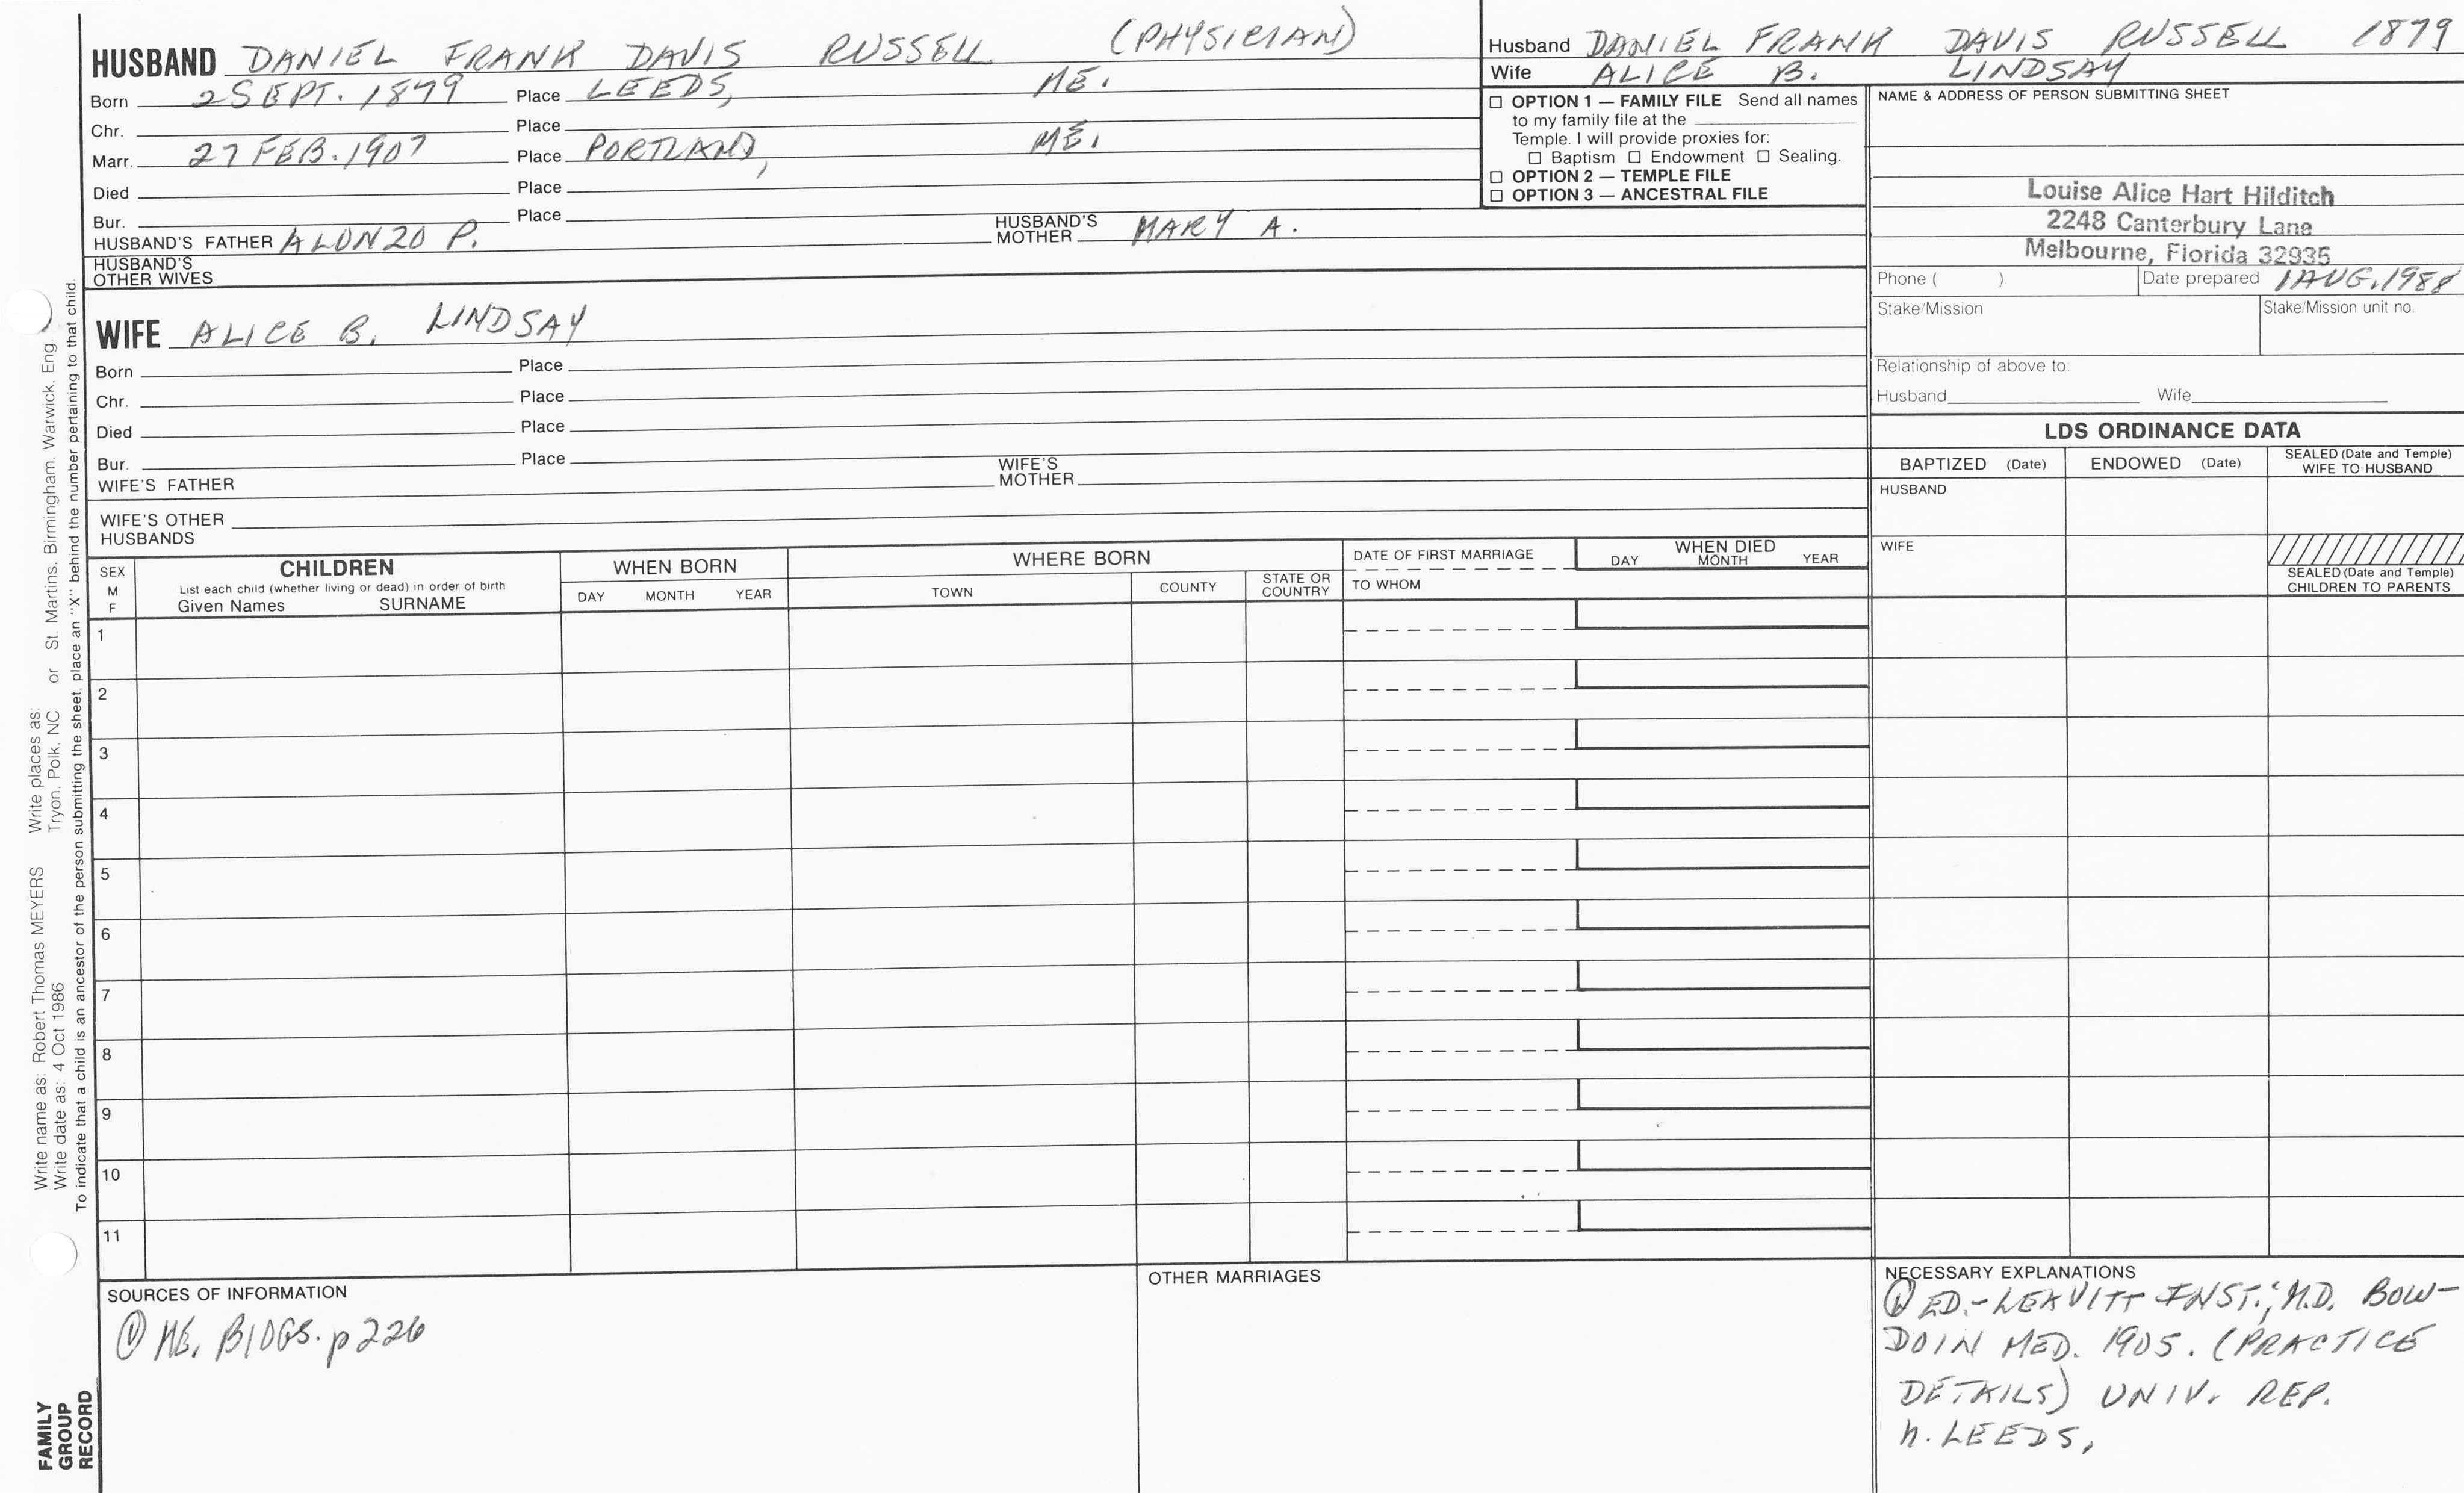 HUSBAND DANIEL FRANK DAVIS RUSSELL (PHYSICIAN)
Born 2 SEPT. 1879 Place LEEDS, ME.
Chr. Place
Marr. 27 FEB. 1907 Place PORTLAND, ME.
Died Place
Bur. Place
HUSBAND'S FATHER ALONZO P. HUSBAND'S MOTHER MARY A.
HUSBAND'S OTHER WIVES
WIFE ALICE B. LINDSAY
Born Place
Chr. Place
Died Place
Bur. Place
WIFE'S FATHER WIFE'S MOTHER
WIFE'S OTHER HUSBANDS
Husband DANIEL FRANK DAVIS RUSSELL 1879
Wife ALICE B. LINDSAY
☐ OPTION 1 — FAMILY FILE Send all names
to my family file at the
Temple. I will provide proxies for:
☐ Baptism ☐ Endowment ☐ Sealing.
☐ OPTION 2 — TEMPLE FILE
☐ OPTION 3 — ANCESTRAL FILE
NAME & ADDRESS OF PERSON SUBMITTING SHEET
Louise Alice Hart Hilditch
2248 Canterbury Lane
Melbourne, Florida 32935
Phone ( ) Date prepared 1 AUG. 1988
Stake/Mission Stake/Mission unit no.
Relationship of above to:
Husband Wife
LDS ORDINANCE DATA
BAPTIZED (Date) ENDOWED (Date) SEALED (Date and Temple) WIFE TO HUSBAND
HUSBAND
WIFE
SEALED (Date and Temple)
CHILDREN TO PARENTS
SEX M F
CHILDREN
List each child (whether living or dead) in order of birth
Given Names SURNAME
WHEN BORN
DAY MONTH YEAR
WHERE BORN
TOWN COUNTY STATE OR COUNTRY
DATE OF FIRST MARRIAGE
TO WHOM
WHEN DIED
DAY MONTH YEAR
1
2
3
4
5
6
7
8
9
10
11
SOURCES OF INFORMATION
① ME. BIOGS. p 226
OTHER MARRIAGES
NECESSARY EXPLANATIONS
① ED.- LEAVITT INST.; M.D. BOW-
DOIN MED. 1905. (PRACTICE
DETAILS) UNIV. REP.
h. LEEDS,
Write name as: Robert Thomas MEYERS Write places as:
Write date as: 4 Oct 1986 Tryon, Polk, NC or St. Martins, Birmingham, Warwick, Eng.
To indicate that a child is an ancestor of the person submitting the sheet, place an "X" behind the number pertaining to that child.
FAMILY
GROUP
RECORD